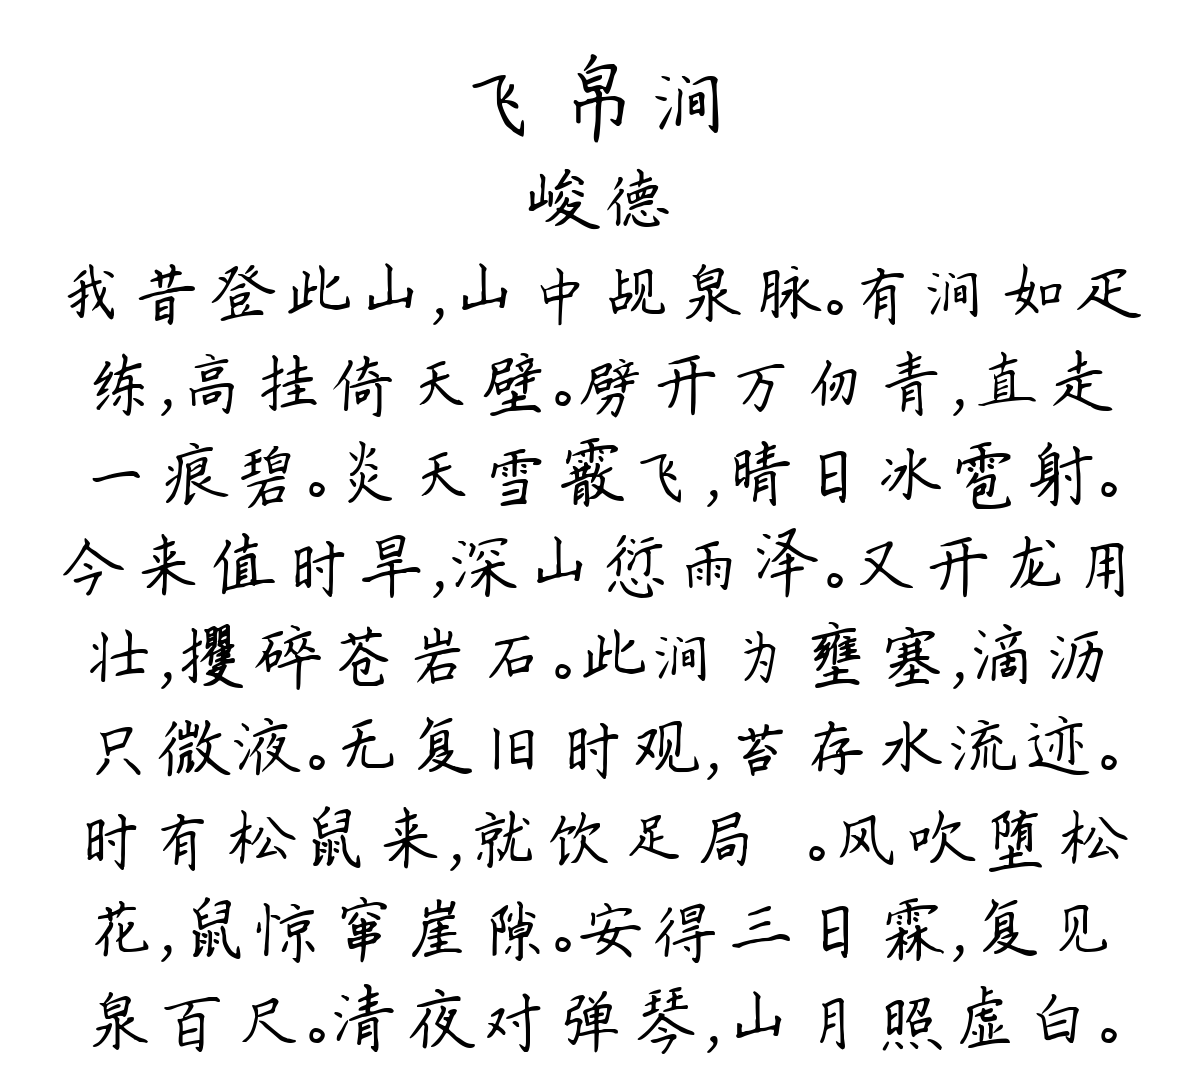 飞帛涧
峻德
我昔登此山,山中觇泉脉。有涧如疋
练,高挂倚天壁。劈开万仞青,直走
一痕碧。炎天雪霰飞,晴日冰雹射。
今来值时旱,深山愆雨泽。又开龙用
壮,攫碎苍岩石。此涧为壅塞,滴沥
只微液。无复旧时观,苔存水流迹。
时有松鼠来,就饮足局 。风吹堕松
花,鼠惊窜崖隙。安得三日霖,复见
泉百尺。清夜对弹琴,山月照虚白。